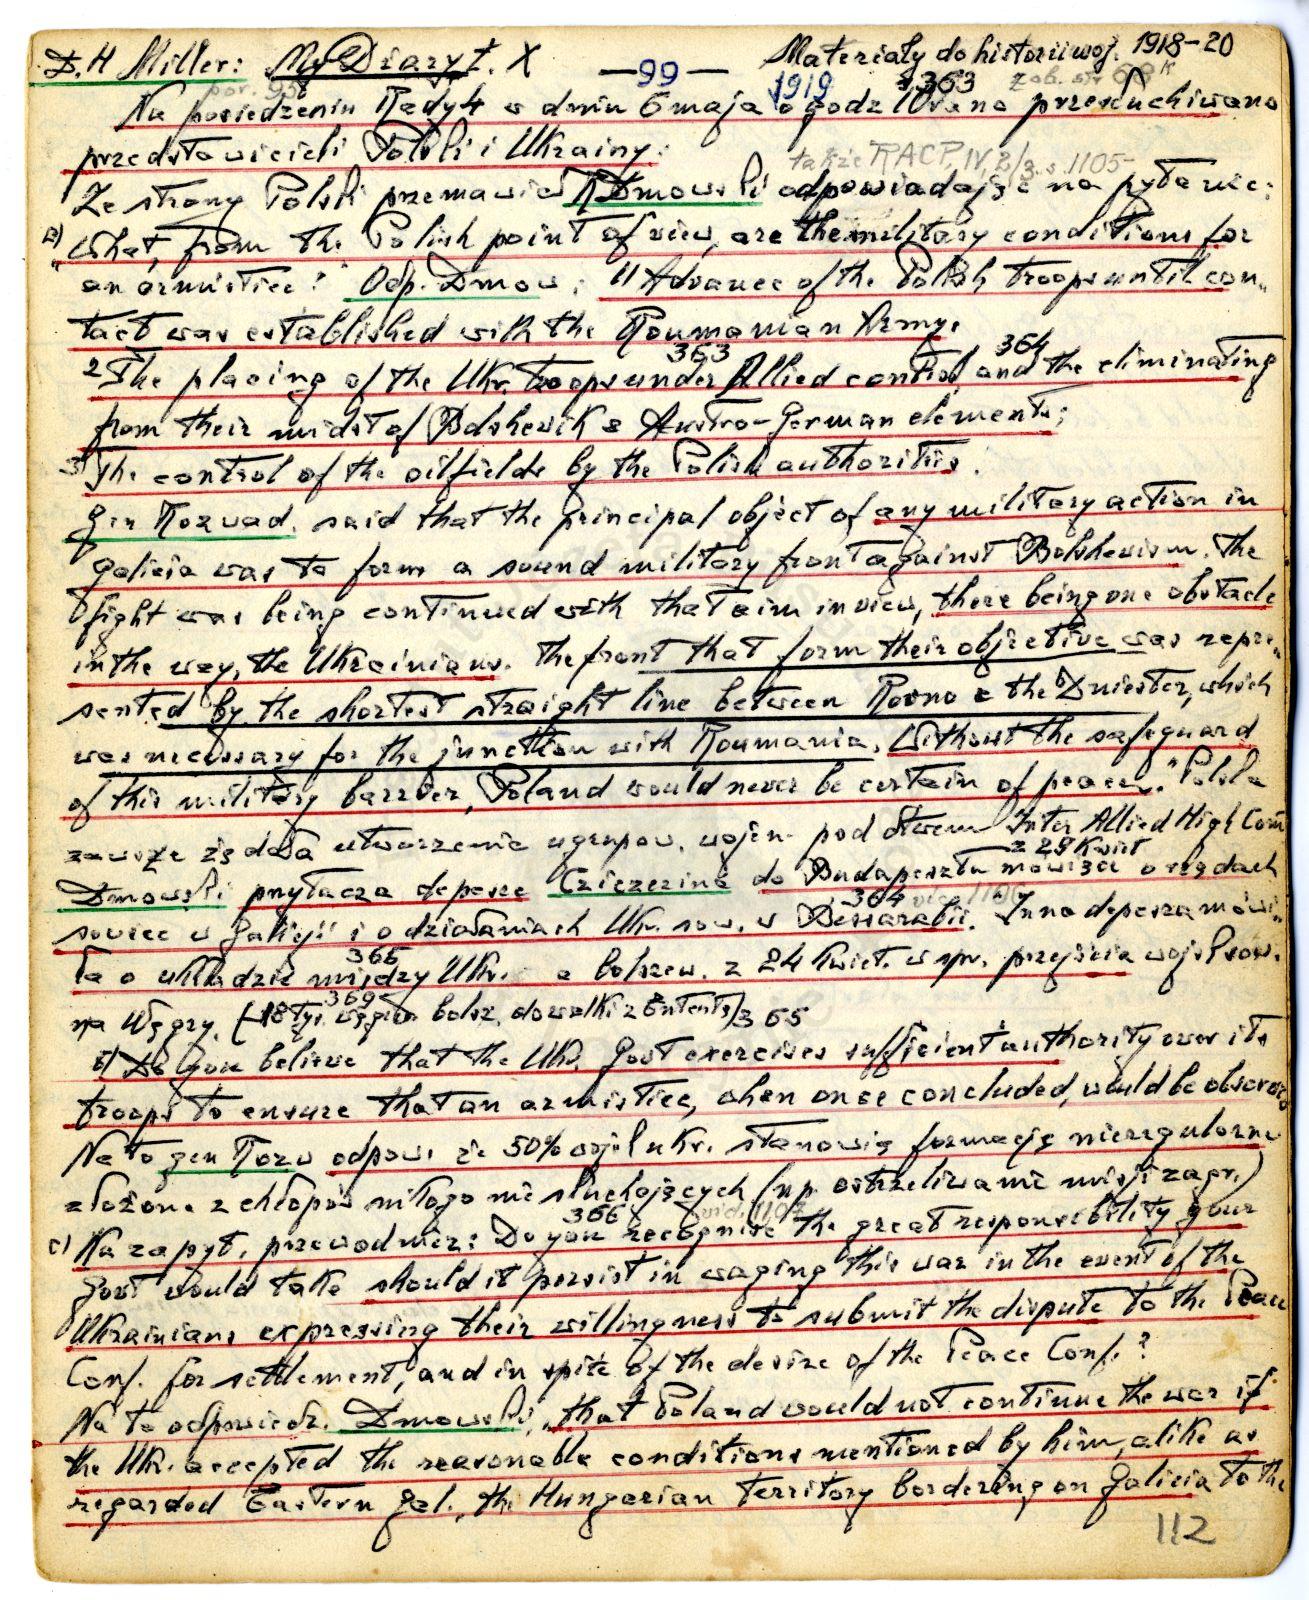 D. H Miller: My Diary t. X —99— Materiały do historii woj. 1918-20
por. 95 1919 s 363 zob. str 68k
Na posiedzeniu Rady 4 w dniu 6 maja o godz 10 rano przesłuchiwano
przedstawicieli Polski i Ukrainy:
także RACP, IV, 2/3. s. 1105
Ze strony Polski przemawiał R Dmowski odpowiadając na pytanie:
a) "What, from the Polish point of view, are the military conditions for
an armistice?" Odp. Dmow.: 1) Advance of the Polish troops until con-
tact was established with the Roumanian Army.
363 364
2 The placing of the Ukr. troops under Allied control, and the eliminating
from their midst of Bolshevik & Austro-German elements;
3) The control of the oilfields by the Polish authorities.
Gen Rozwad. said that the principal object of any military action in
Galicia was to form a sound military front against Bolshevism. The
fight was being continued with that aim in view, there being one obstacle
in the way, the Ukrainians. The front that form their objective was repre-
sented by the shortest straight line between Rovno & the Dniester, which
was necessary for the junction with Roumania. Without the safeguard
of this military barrier, Poland would never be certain of peace." Polska
zawsze żądała utworzenia ugrupow. wojen. pod dtwem Inter Allied High Com
z 29 Kwiet
Dmowski przytacza depeszę Cziczerina do Budapesztu mówiącą o rządach
364 vide 1106
sowiec w Galicji i o działaniach Ukr. sow. w Bessarabii. Inna depesza mówi-
ła o układzie między Ukr. a bolszew. z 24 kwiet. w spr. przejścia wojsk sow.
365
369
na Węgry. (18 tys. węgier bolsz. do walki z Ententą) 365
b) Do you believe that the Ukr. Govt exercises sufficient authority over its
troops to ensure that an armistice, when once concluded, would be observed
Na to gen Rozw odpow. że 50% wojsk ukr. stanowią formacje nieregularne
złożone z chłopów nikogo nie słuchających (np. ostrzeliwanie misji zagr.)
366 vid. 1107
c) Na zapyt. przewodnicz: Do you recognise the great responsibility your
Govt would take should it persist in waging this war in the event of the
Ukrainians expressing their willingness to submit the dispute to the Peace
Conf. for settlement, and in spite of the desire of the Peace Conf.?
Na to odpowiedz. Dmowski, "that Poland would not continue the war if
the Ukr. accepted the reasonable conditions mentioned by him, alike as
regarded Eastern Gal., the Hungarian territory bordering on Galicia to the
112